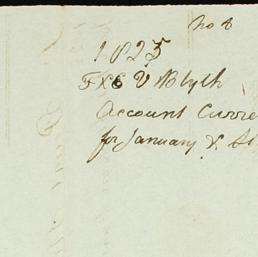 No 8
1825
F & E V Blyth
Account Curre
for January &